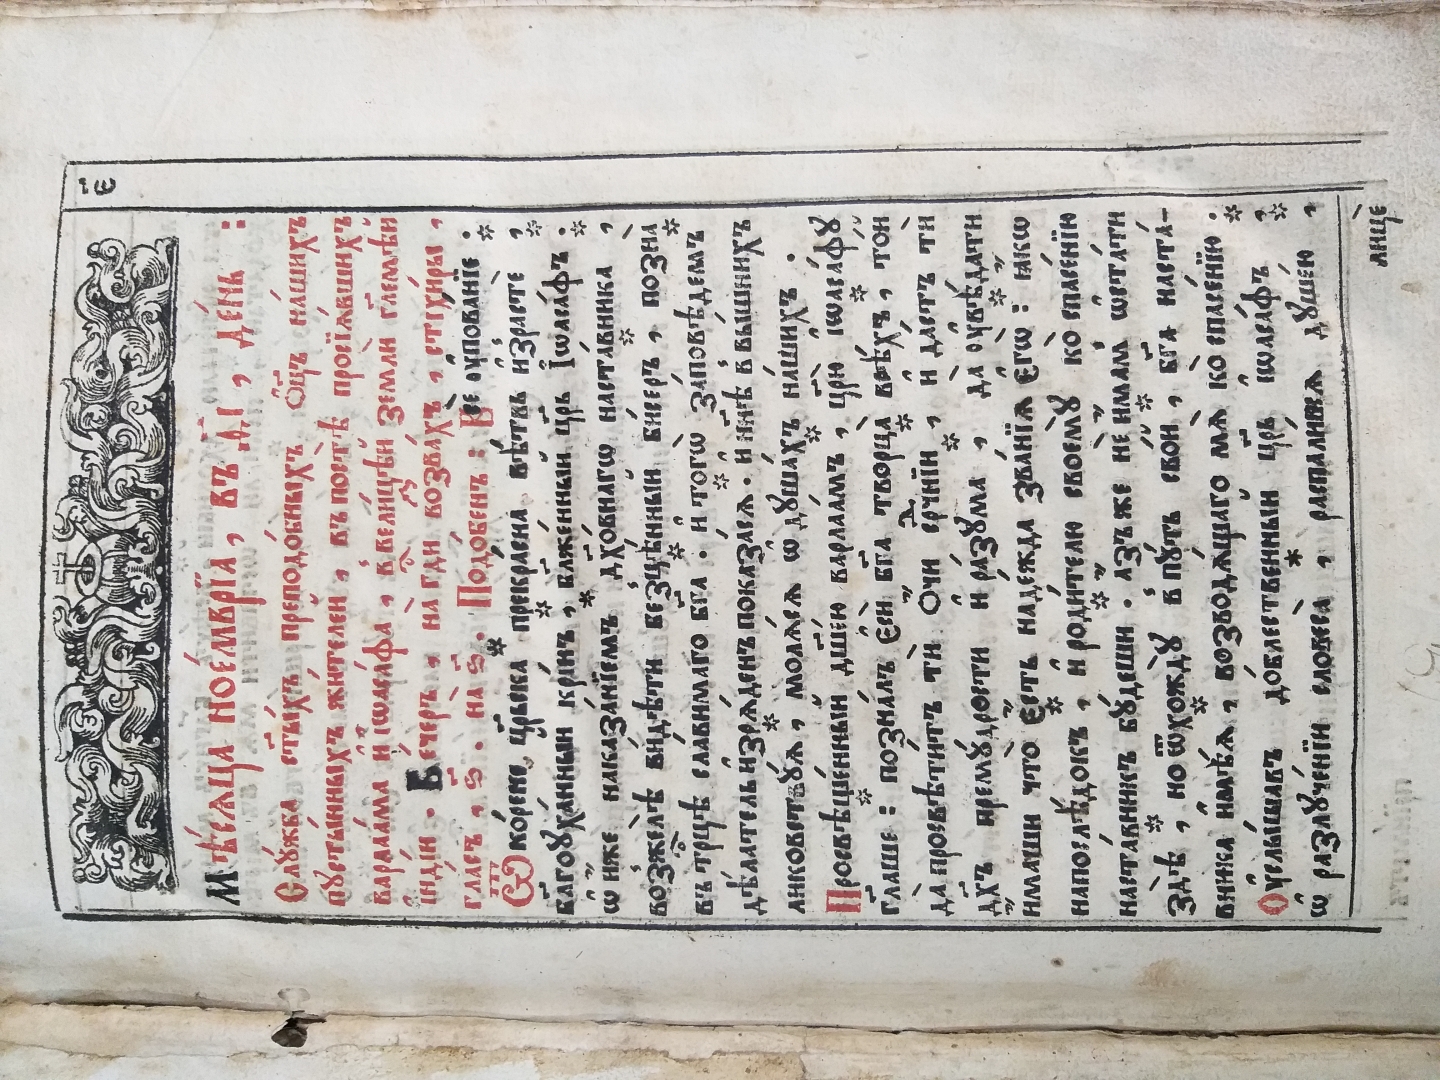 ѿ і
Мѣ́сѧца ноѐмврі́а, въ д҃і, де́нь :
Слꙋ́жба ст҃ы́хъ преподо́бныхъ ѻ҆ц҃ъ на́шихъ
пꙋсты́нныхъ жи́телеи, въ по́стѣ просїѧ́вшихъ
варлаа́ма и҆ і҆ѡаса́фа, в вели́цѣи землѝ гл҃емѣи
і҆нді́и . Ве́черъ, на гд҃и возва́хъ, стїхи́ры,
гла́съ, ѕ҃ . на ѕ҃ . Подо́бенъ : Все ѹ҆пова́нїе .
Ѿ ко́рене, цр҃ьска прекра́сна вѣ́твь и҆зра́сте,
благоꙋха́нныи кри́нъ, бл҃же́нныи цр҃ь І҆ѡаса́фъ .
ѡ҆ не́мже наказа́нїемъ дх҃о́внагѡ наста́вника,
возжелѣ̀ ви́дѣти безцѣ́нныи би́серъ, позна̀
въ трⷪ҇цѣ сла́вимаго бг҃а . и҆ того̀ заповѣ́демъ
дѣ́латель и҆зрѧ́денъ показа́сѧ . и҆ нн҃ѣ в вы́шнихъ
ликовствꙋ́ѧ, молѧ́сѧ ѡ҆ дꙋша́хъ на́шихъ .
Просвѣще́нныи дш҃е́ю варлаа́мъ, цр҃ю̀ і҆ѡаса́фꙋ
гл҃аше : позна́лъ єсѝ бг҃а творца̀ всѣ́хъ, то́и
да просвѣти́тъ тѝ Ѻ҆́чи се́рⷣчнїи, и҆ да́стъ тѝ
дх҃ъ премꙋ́дрости и҆ ра́зꙋма, да̀ ѹ҆вѣ́дати
и҆́маши что̀ є҆́сть наде́жда зва́нїѧ є҆гѡ̀ : ꙗ҆́кѡ
напослѣ́докъ, и҆ роди́телю своемꙋ̀ ко̀ спасе́нїю
наста́вникъ бꙋ́деши . а҆́зъ же не и҆́мамъ ѡ҆ста́ти
здѣ̀, но ѿхождꙋ̀ в пꙋ́ть сво́и, бг҃а наста́-
вника и҆мѣ́ѧ, возводѧ́щаго мѧ̀ ко̀ спасе́нїю .
Оу҆слы́шавъ до́блественныи цр҃ь і҆ѡаса́фъ,
ѡ҆ разлꙋче́нїи словеса̀, распалѧ́ѧсѧ дꙋше́ю,
лицѐ